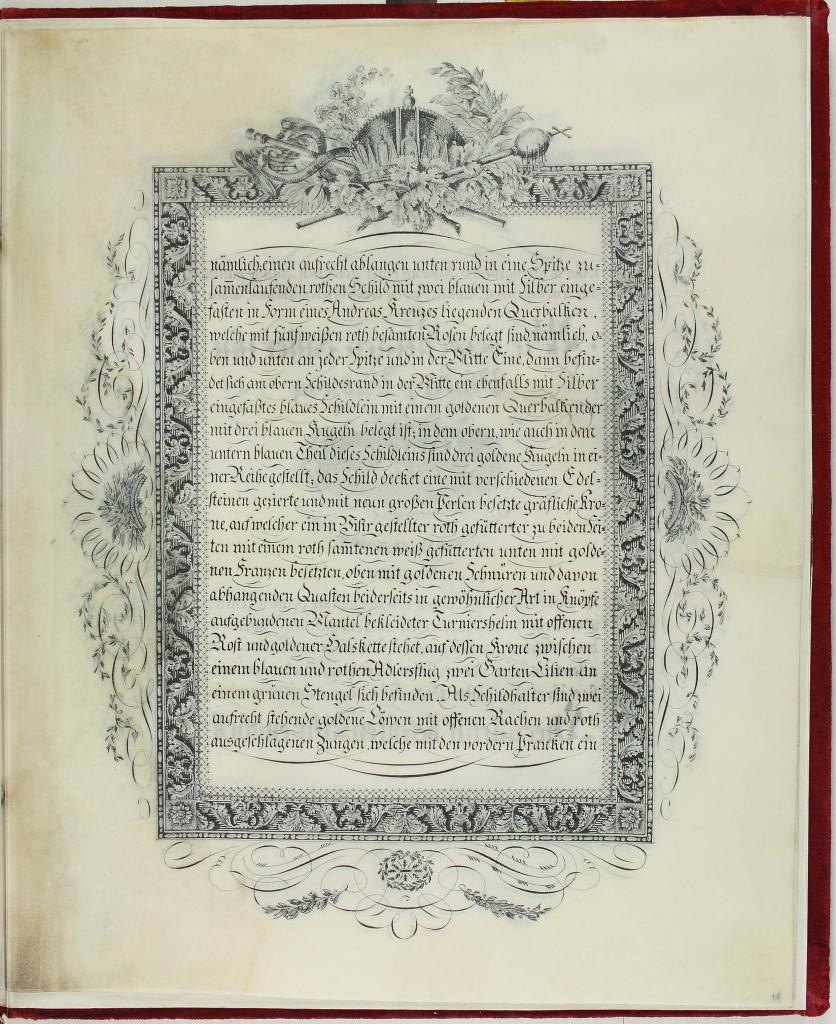 nämlich: einen aufrecht ablangen unten rund in eine Spitze zu-
sam̅enlaufenden rothen Schild mit zwei blauen mit Silber einge-
faßten in Form eines Andreas Kreuzes liegenden Querbalken,
welche mit fünf weißen roth besamten Rosen belegt sind, nämlich, o-
ben und unten an jeder Spitze und in der Mitte Eine, dann befin-
det sich am obern Schildesrand in der Mitte ein ebenfalls mit Silber
eingefaßtes blaues Schildlein mit einem goldenen Querbalken der
mit drei blauen Kugeln belegt ist; in dem obern, wie auch in dem
untern blauen Theil dieses Schildleins sind drei goldene Kugeln in ei-
ner Reihe gestellt; das Schild decket eine mit verschiedenen Edel-
steinen gezierte und mit neun großen Perlen besetzte gräfliche Kro-
ne, auf welcher ein in Visir gestellter roth gefütterter zu beiden Sei-
ten mit einem roth sam̅tenen weiß gefütterten unten mit golde-
nen Franzen besetzten, oben mit goldenen Schnüren und davon
abhangenden Quasten beiderseits in gewöhnlicher Art in Knöpfe
aufgebundenen Mantel bekleideter Turniershelm mit offenen
Rost und goldener Halskette stehet, auf dessen Krone zwischen
einem blauen und rothen Adlersflug zwei Garten-Lilien an
einem grünen Stengel sich befinden. Als Schildhalter sind zwei
aufrecht stehende goldene Löwen mit offenen Rachen und roth
ausgeschlagenen Zungen, welche mit den vordern Pranken ein
11